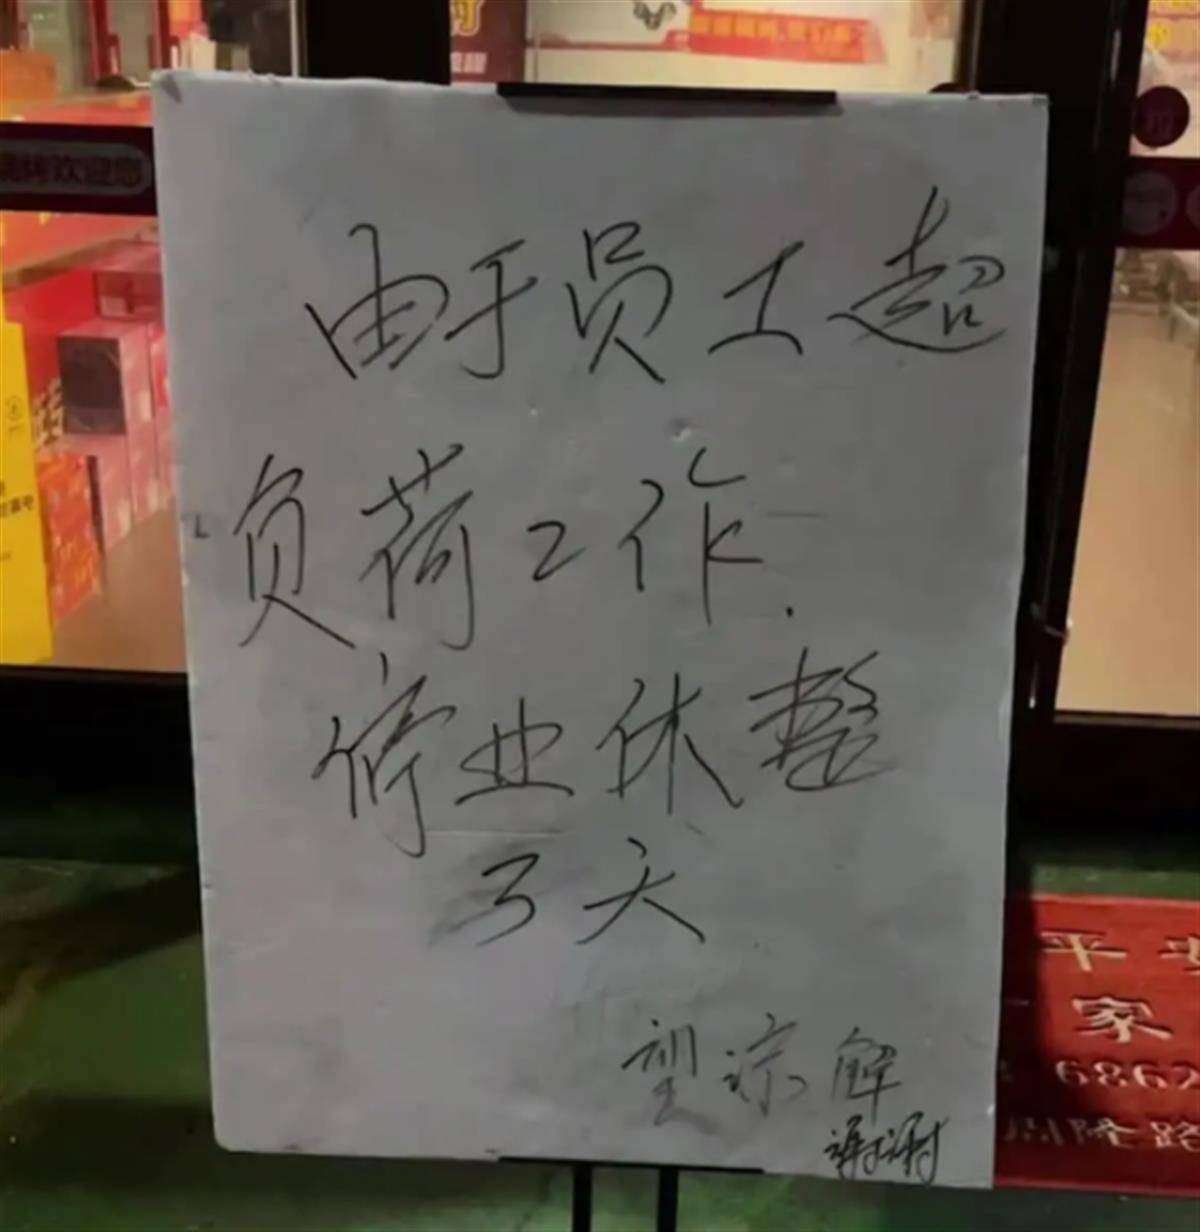 由于员工超
负荷工作.
停业休整
3天
望谅解
谢谢
欢迎您
平安
家
6862
隆路